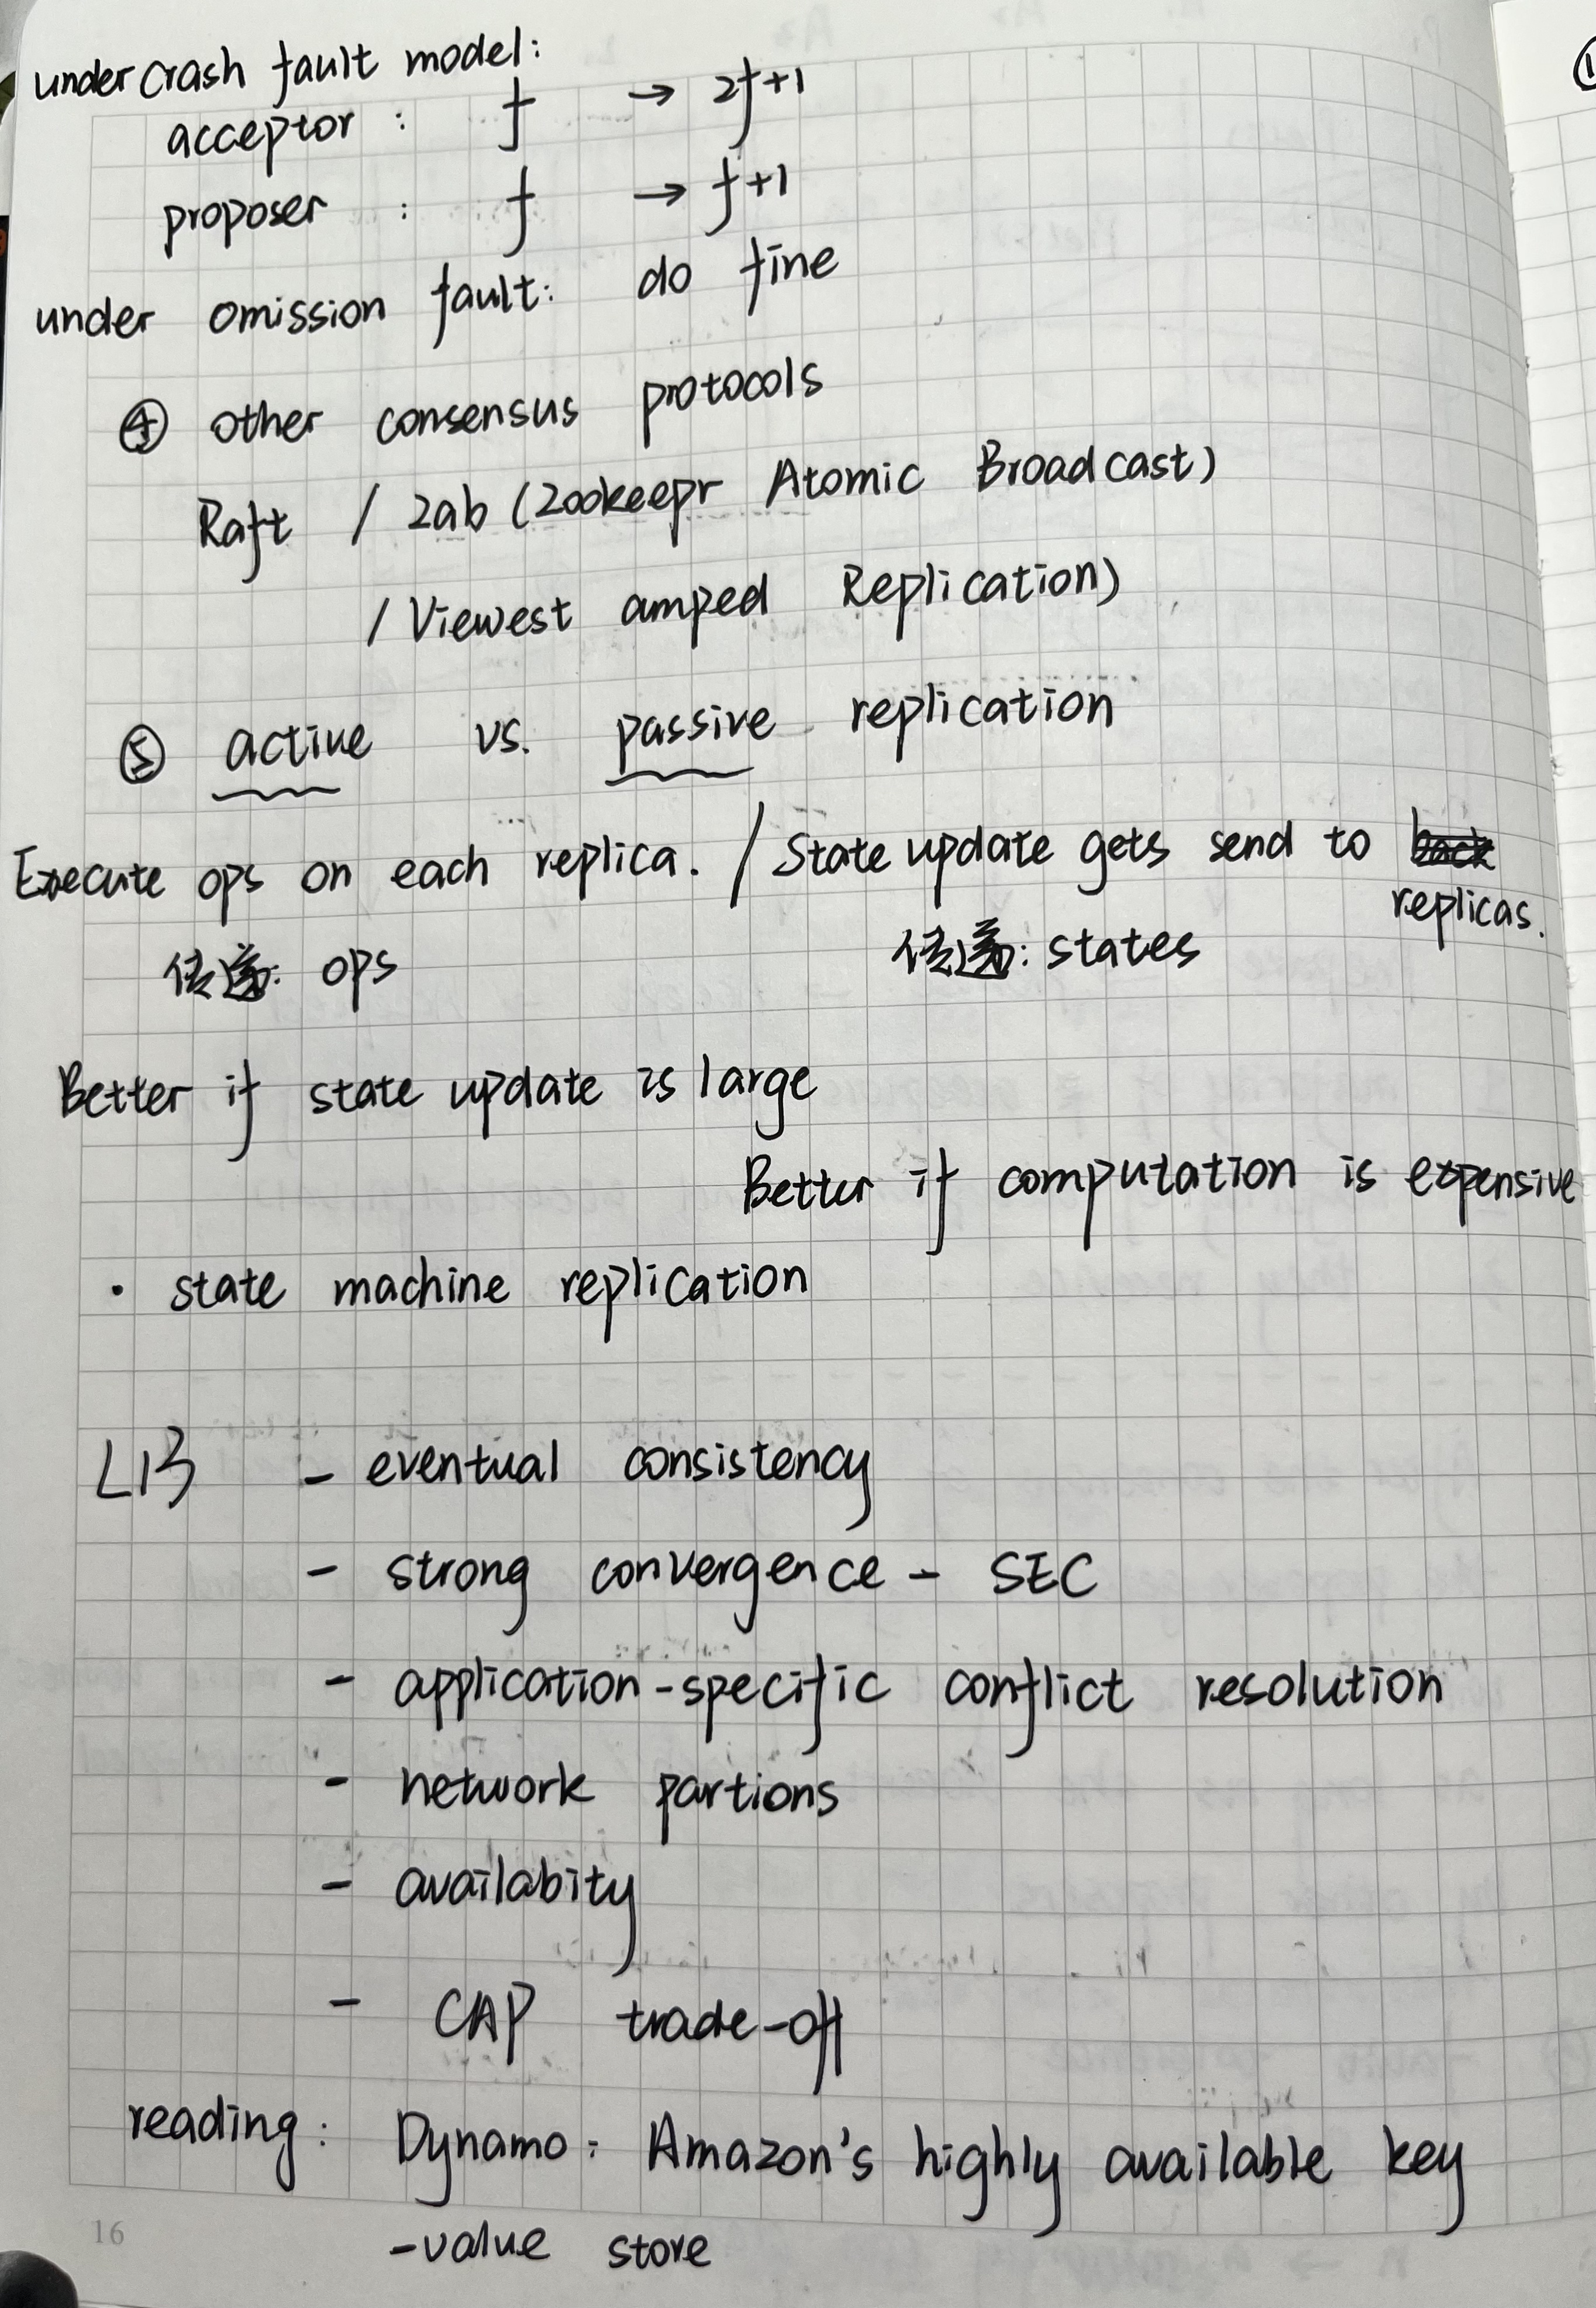 under crash fault model:
acceptor : f → 2f+1
proposer : f → f+1
under omission fault: do fine
④ other consensus protocols
Raft / Zab (Zookeepr Atomic Broadcast)
/ Viewest amped Replication)
⑤ active vs. passive replication
Execute ops on each replica. / State update gets send to back
replicas.
传递: ops 传递: states
Better if state update is large
Better if computation is expensive
· state machine replication
L13 - eventual consistency
- strong convergence - SEC
- application-specific conflict resolution
- network partions
- availabity
- CAP trade-off
reading: Dynamo: Amazon's highly available key
-value store
16